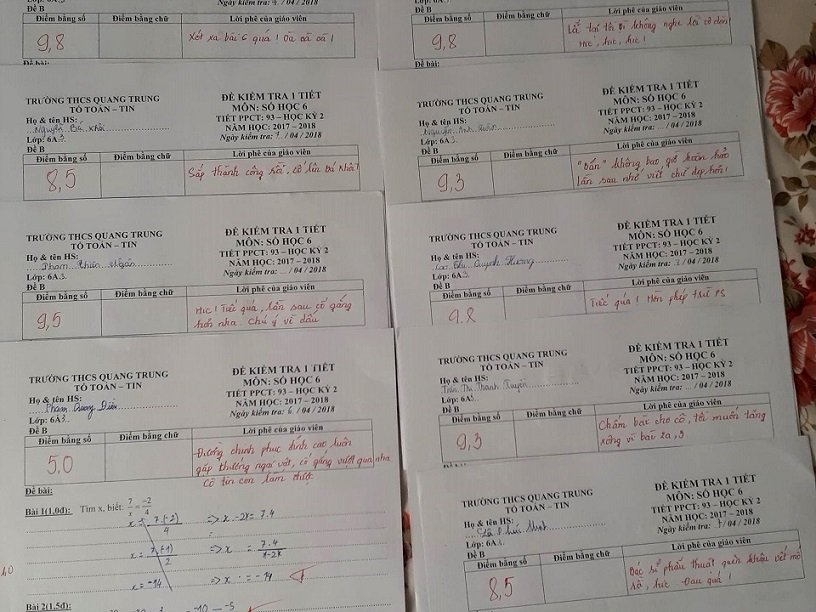 Đề B
Điểm bằng số
Điểm bằng chữ
Lời phê của giáo viên
9,8
Xót xa bài 6 quá! Òa òa òa!
Đề bài:
TRƯỜNG THCS QUANG TRUNG
TỔ TOÁN – TIN
ĐỀ KIỂM TRA 1 TIẾT
MÔN: SỐ HỌC 6
TIẾT PPCT: 93 – HỌC KỲ 2
NĂM HỌC: 2017 – 2018
Họ & tên HS:
Nguyễn Bá Khôi
Lớp: 6A3
Ngày kiểm tra: /04/2018
Đề B
Điểm bằng số
Điểm bằng chữ
Lời phê của giáo viên
8,5
Sắp thành công rồi, cố lên Bá Khôi!
TRƯỜNG THCS QUANG TRUNG
TỔ TOÁN – TIN
ĐỀ KIỂM TRA 1 TIẾT
MÔN: SỐ HỌC 6
TIẾT PPCT: 93 – HỌC KỲ 2
NĂM HỌC: 2017 – 2018
Họ & tên HS:
Phạm Thiên Ngân
Lớp: 6A3
Ngày kiểm tra: ... / 04 / 2018
Đề B
Điểm bằng số
Điểm bằng chữ
Lời phê của giáo viên
9,5
Hic! Tiếc quá, lần sau cố gắng
hơn nha. Chú ý về dấu
TRƯỜNG THCS QUANG TRUNG
TỔ TOÁN – TIN
ĐỀ KIỂM TRA 1 TIẾT
MÔN: SỐ HỌC 6
TIẾT PPCT: 93 – HỌC KỲ 2
NĂM HỌC: 2017 – 2018
Họ & tên HS:
Phạm Dương
Lớp: 6A3
Ngày kiểm tra: 6 / 04 / 2018
Đề B
Điểm bằng số
Điểm bằng chữ
Lời phê của giáo viên
5,0
Đường chinh phục đỉnh cao luôn
gặp chướng ngại vật, cố gắng vượt qua nha
Cô tin con làm được
Đề bài:
Bài 1(1,0đ): Tìm x, biết: 7/x = -2/4
x = 7.(-2)/4 => x.-2 = 7.4
x = 7.(-1)/2 => x = 7.4/-2
x = -14 => x = -14
Bài 2(1,5đ):
Đề B
Điểm bằng số
Điểm bằng chữ
Lời phê của giáo viên
9,8
Là tại tôi vì không nghe lời cô dặn
Hic, hic, hic!
Đề bài:
TRƯỜNG THCS QUANG TRUNG
TỔ TOÁN – TIN
ĐỀ KIỂM TRA 1 TIẾT
MÔN: SỐ HỌC 6
TIẾT PPCT: 93 – HỌC KỲ 2
NĂM HỌC: 2017 – 2018
Họ & tên HS:
Nguyễn Anh
Lớp: 6A3
Ngày kiểm tra: ... / 04 / 2018
Đề B
Điểm bằng số
Điểm bằng chữ
Lời phê của giáo viên
9,3
không bao giờ hoàn hảo
lần sau nhớ viết chữ đẹp hơn!
TRƯỜNG THCS QUANG TRUNG
TỔ TOÁN – TIN
ĐỀ KIỂM TRA 1 TIẾT
MÔN: SỐ HỌC 6
TIẾT PPCT: 93 – HỌC KỲ 2
NĂM HỌC: 2017 – 2018
Họ & tên HS:
Quỳnh Hương
Lớp: 6A3
Ngày kiểm tra: 3 / 04 / 2018
Đề B
Điểm bằng số
Điểm bằng chữ
Lời phê của giáo viên
9,8
Tiếc quá! Hơn phép trừ PS
TRƯỜNG THCS QUANG TRUNG
TỔ TOÁN – TIN
ĐỀ KIỂM TRA 1 TIẾT
MÔN: SỐ HỌC 6
TIẾT PPCT: 93 – HỌC KỲ 2
NĂM HỌC: 2017 – 2018
Họ & tên HS:
Trần Thị Thanh Tuyền
Lớp: 6A3
Ngày kiểm tra: ... / 04 / 2018
Đề B
Điểm bằng số
Điểm bằng chữ
Lời phê của giáo viên
9,3
Chấm bài cho cô, tôi muốn tăng
xông vì bài 2a,3
TRƯỜNG THCS QUANG TRUNG
TỔ TOÁN – TIN
ĐỀ KIỂM TRA 1 TIẾT
MÔN: SỐ HỌC 6
TIẾT PPCT: 93 – HỌC KỲ 2
NĂM HỌC: 2017 – 2018
Họ & tên HS:
Lớp: 6A3
Ngày kiểm tra: / 04 / 2018
Đề B
Điểm bằng số
Điểm bằng chữ
Lời phê của giáo viên
8,5
Bác sĩ phẫu thuật quên khâu vết mổ
rồi, hic. Đau quá!